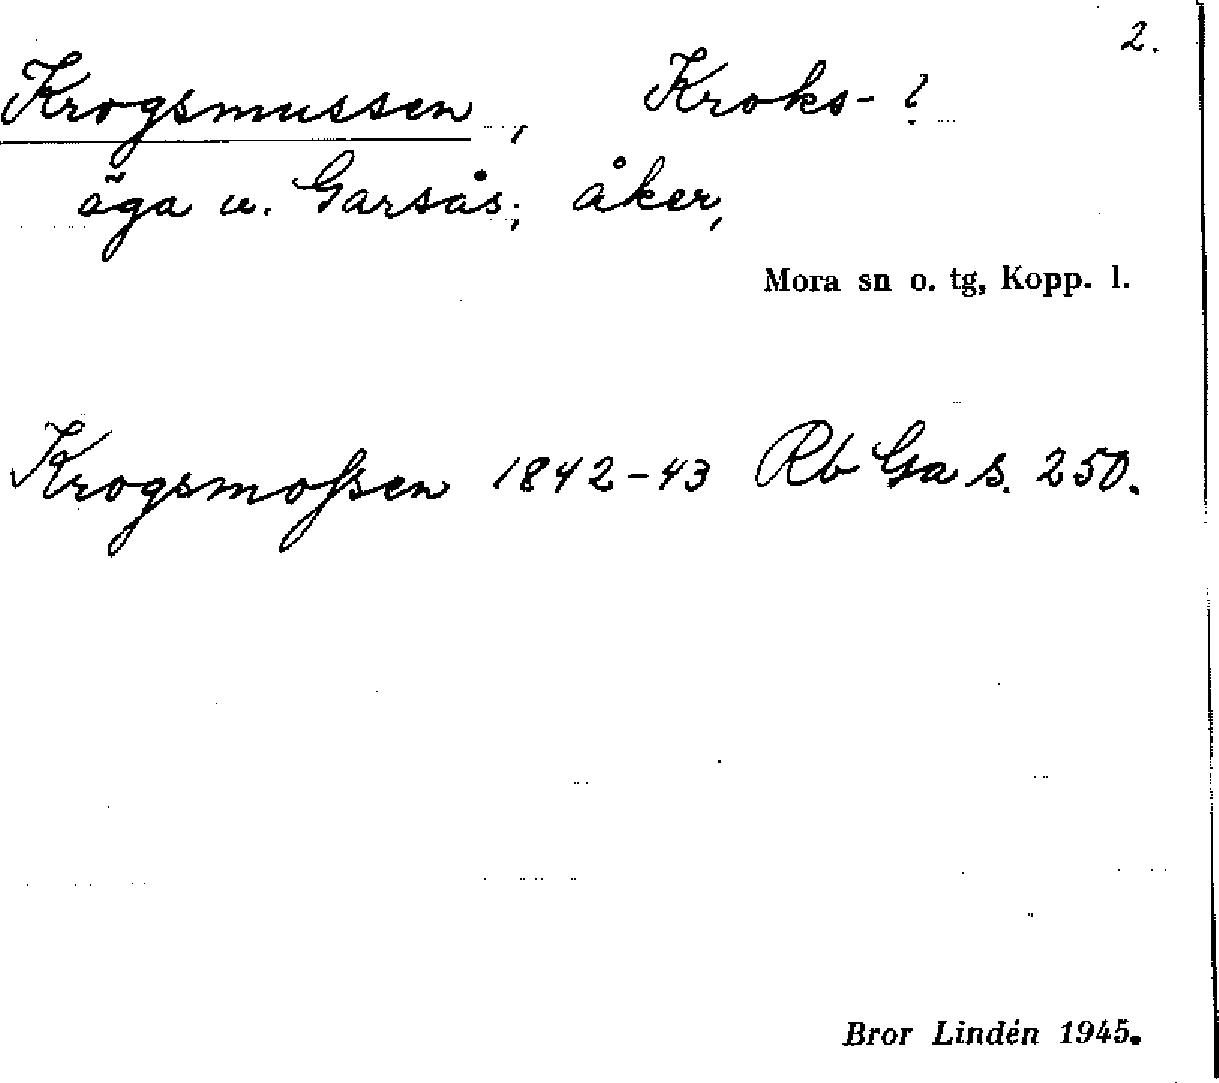 2.
Krogsmussen, Kroks-?
äga u. Garsås; åker,
Mora sn o. tg, Kopp. l.
Krogsmossen 1842-43 Rb Ga s. 250.
Bror Lindén 1945.